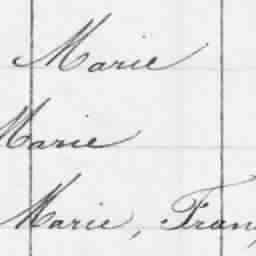 Marie
Marie
Marie, Fran